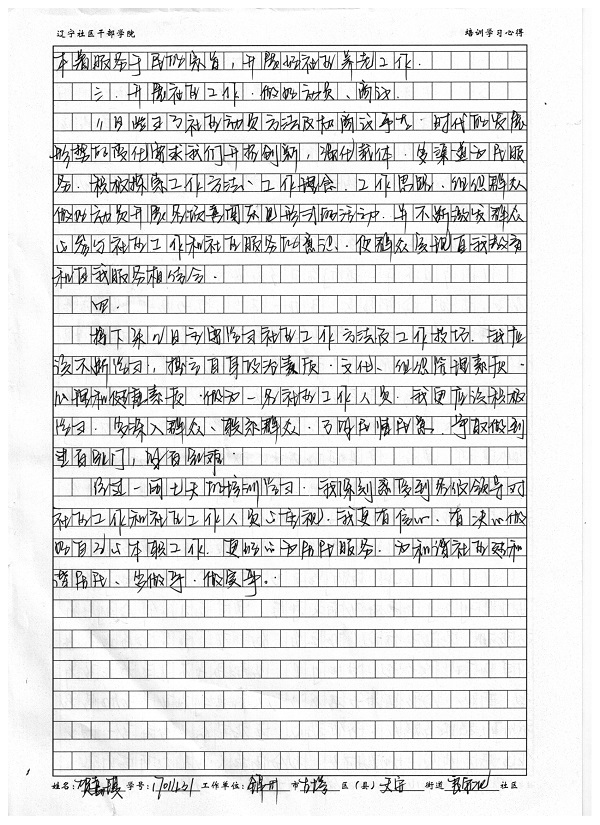 辽宁社区干部学院 培训学习心得
本着服务于民的宗旨，开展好社区养老工作．
三．开展社区工作．做好动员、商议．
11日学习了社区动员方法及协商议事．时代的发展
转型的变化需求我们开拓创新，强化载体．多渠道为民服
务．积极探索工作方法、工作理念、工作思路．组织群众
做好动员开展各项喜闻乐见形式的活动．并不断激发群众
参与社区工作和社区服务的意识．使群众实现自我教育
和自我服务相结合．
四．
接下来12日主要学习社区工作方法及工作技巧．我应
该不断学习，提高自身政治素质．文化、组织管理素质．
心理和健康素质．做为一名社区工作人员．我更应该积极
学习．多深入群众、联系群众．了解民情民意．争取做到
进百家门，解百家难．
经过一周七天的培训学习．我深刻感受到各级领导对
社区工作和社区工作人员的重视．我更有信心．有决心做
好自己的本职工作．更好的为居民服务．为和谐社区和
谐居民、多做事．做实事．
姓名： 学号： 工作单位：锦州市古塔区（县）天安街道 社区